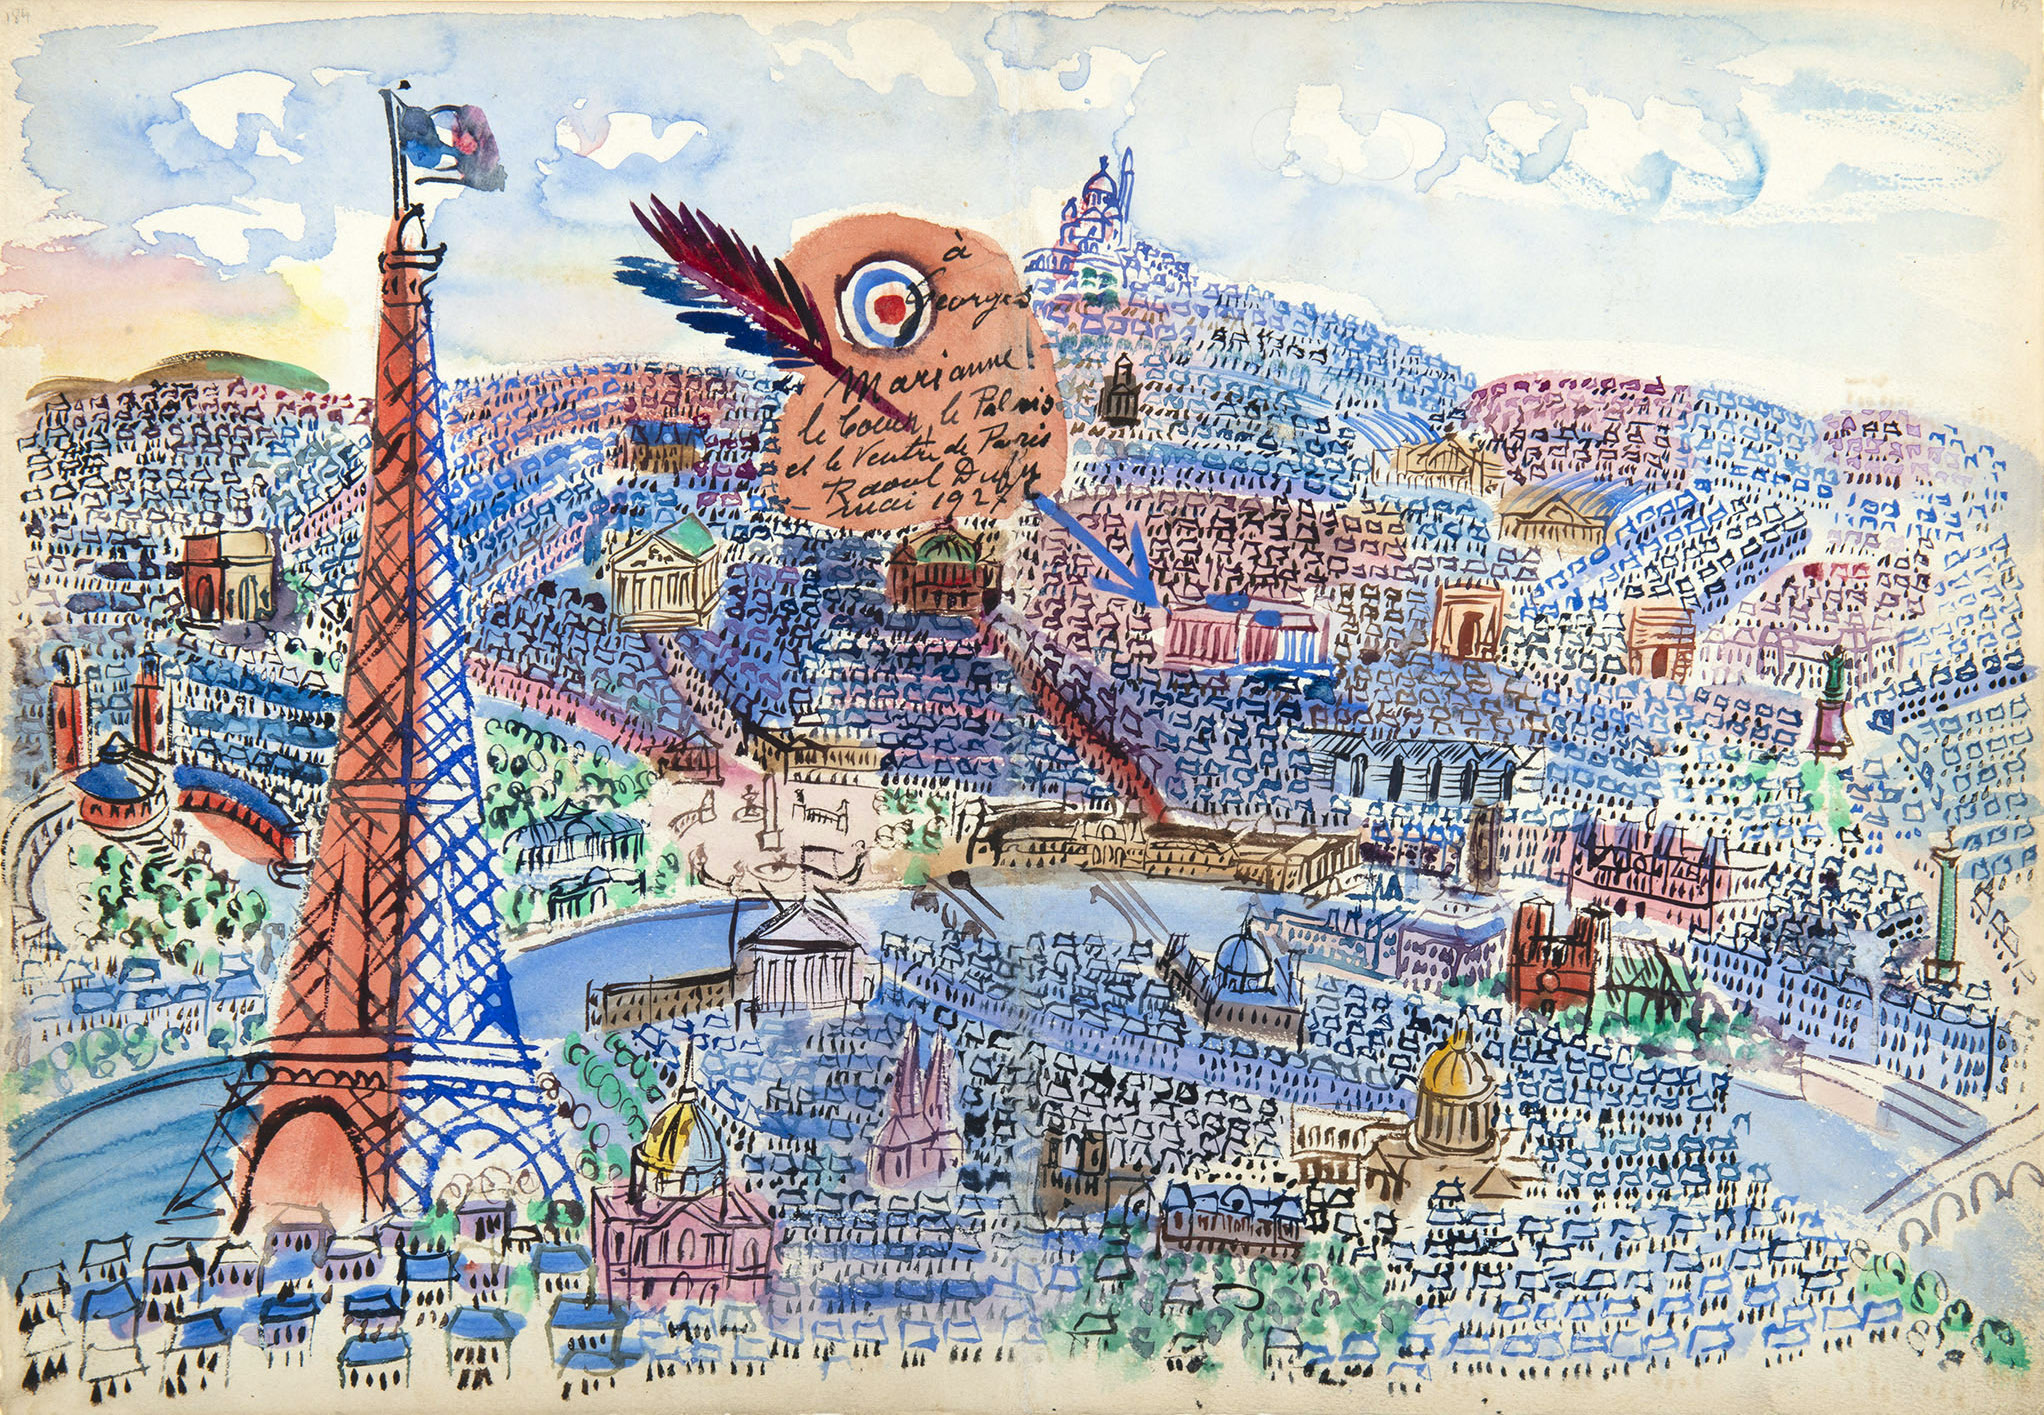 184
à
Georges
Marianne!
le Coeur, le Palais
et le Ventre de Paris
Raoul Dufy
- mai 1927
185